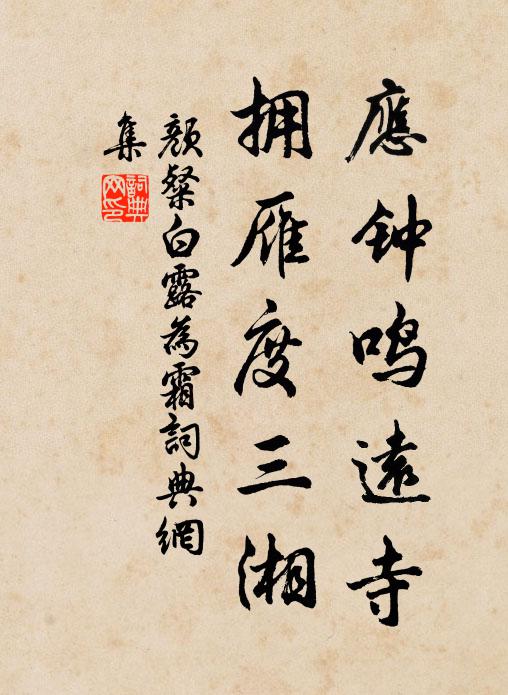 應钟鸣遠寺
拥雁度三湘
顏粲白露為霜詞典網
集
詞典
网印